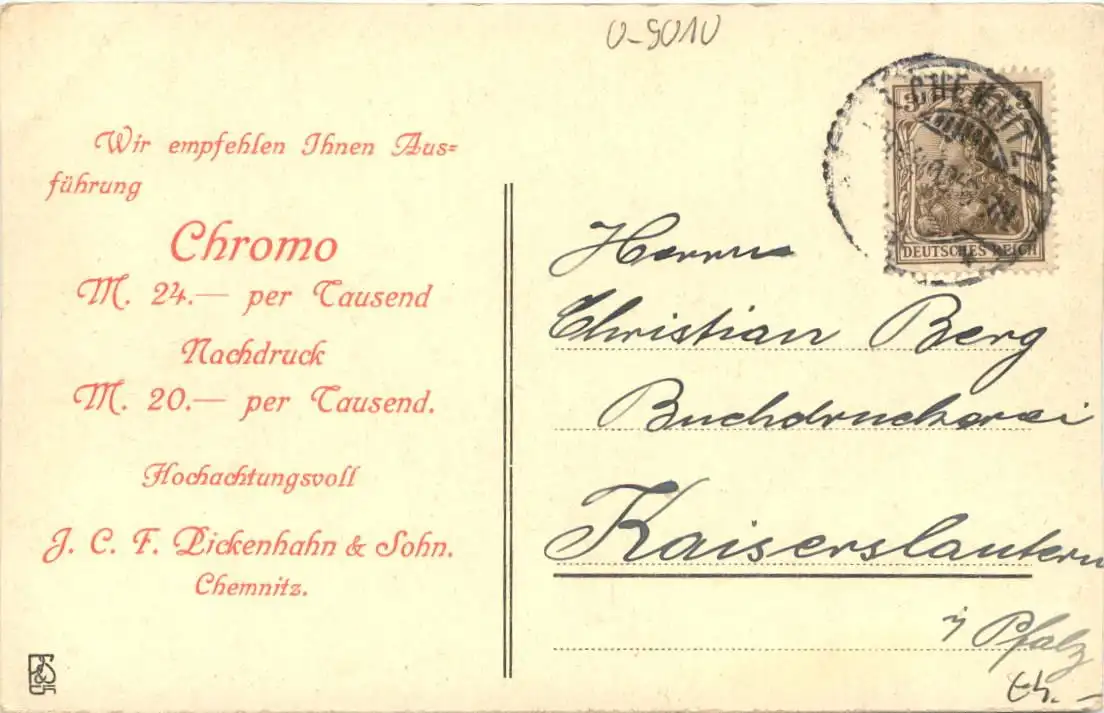 0-9010
Wir empfehlen Ihnen Aus=
führung
Chromo
M. 24.— per Tausend
Nachdruck
M. 20.— per Tausend.
Hochachtungsvoll
J. C. F. Pickenhahn & Sohn.
Chemnitz.
CHEMNITZ
3 3
DEUTSCHES REICH
Herrn
Christian Berg
Buchdruckerei
Kaiserslautern
i Pfalz